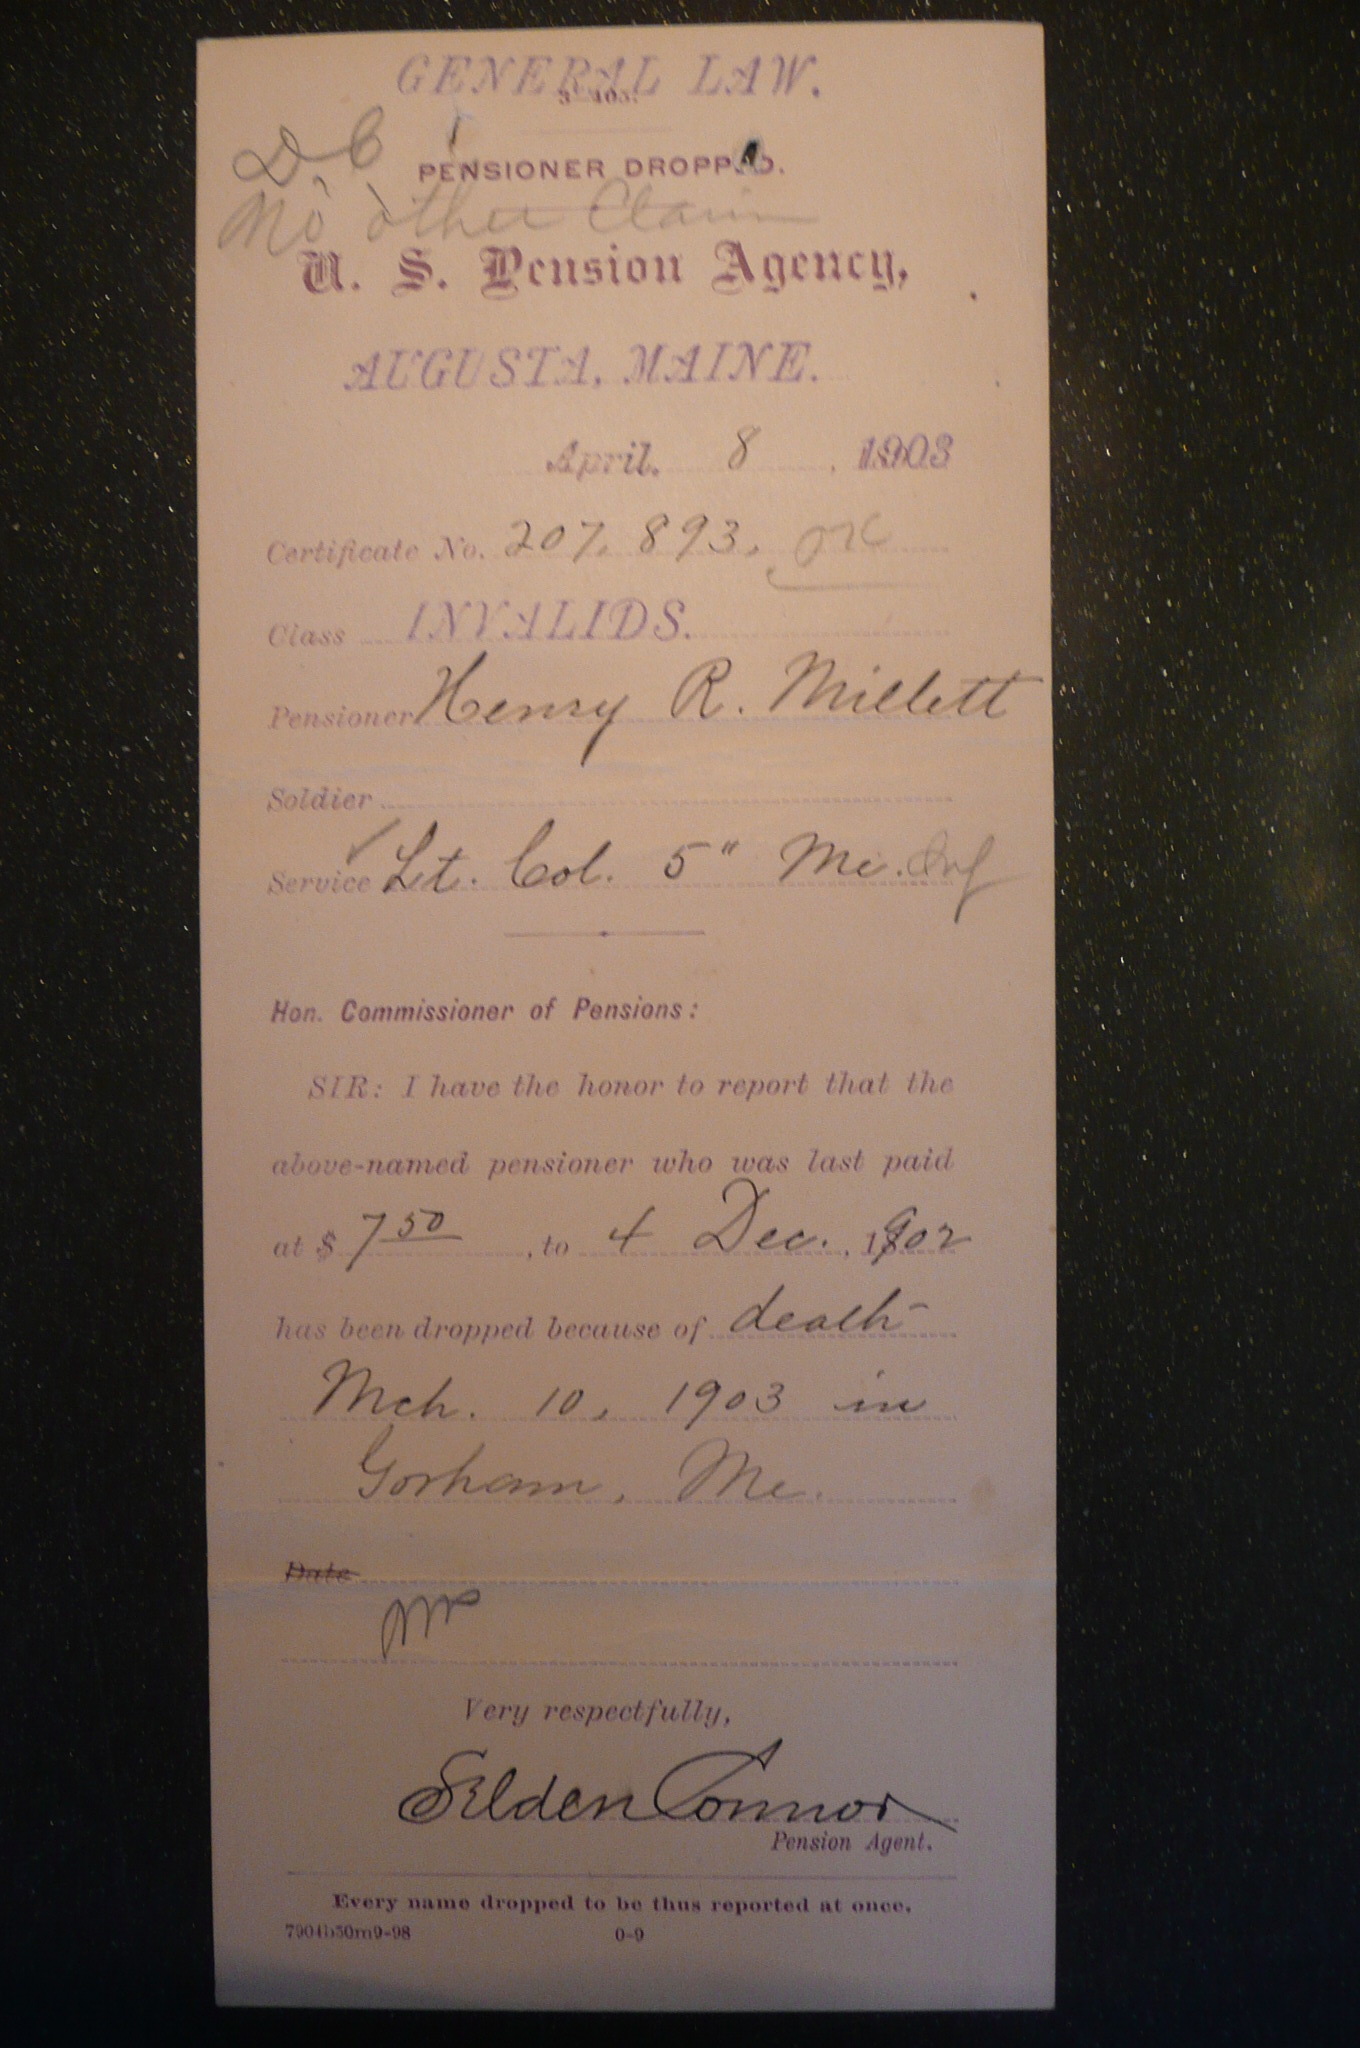 GENERAL LAW.
3—405.
D. C
PENSIONER DROPPED.
No other Claim
U. S. Pension Agency,
AUGUSTA, MAINE.
April. 8, 1903
Certificate No. 207,893, OK
Class INVALIDS.
Pensioner Henry R. Millett
Soldier
Service Lt. Col. 5" Me. Inf
Hon. Commissioner of Pensions:
SIR: I have the honor to report that the
above-named pensioner who was last paid
at $ 7 50, to 4 Dec., 1902
has been dropped because of death
Mch. 10, 1903 in
Gorham, Me.
Date
Very respectfully,
Selden Connor
Pension Agent.
Every name dropped to be thus reported at once.
7904b50m9-98 0-9